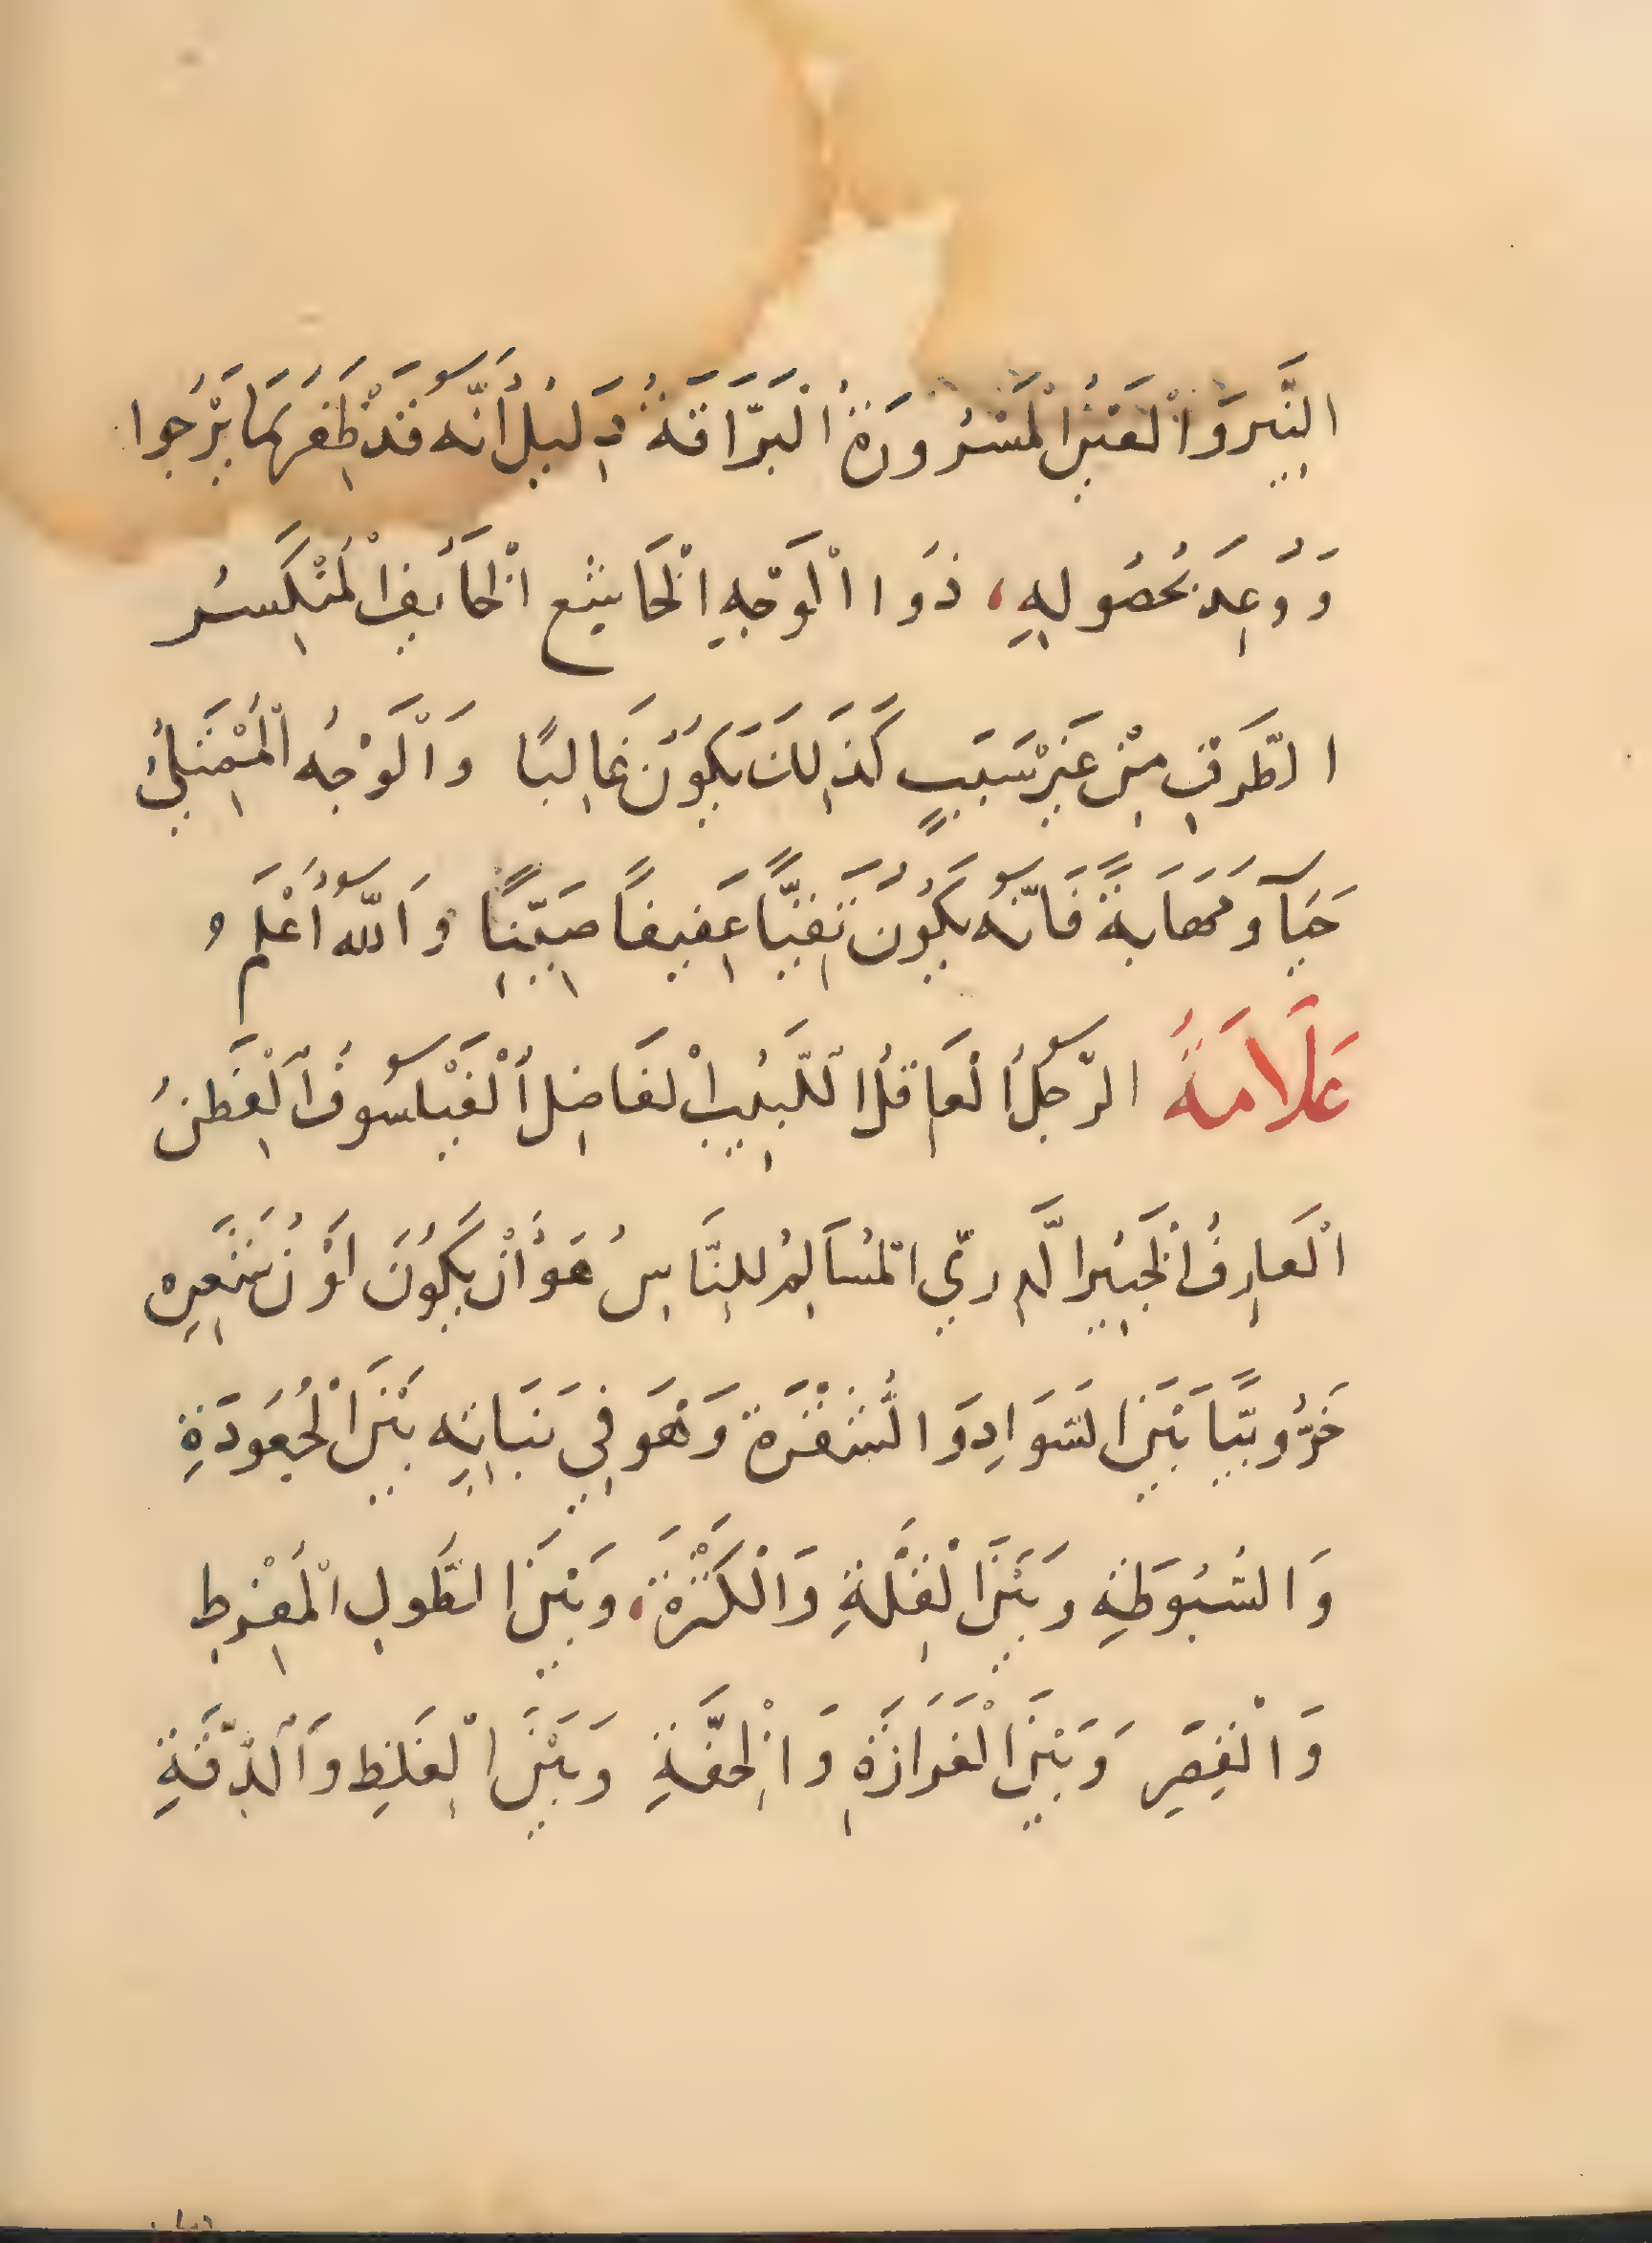 النَّيِّرِ وَالْعَيْنُ الْمَسْرُورَةُ الْبَرَّاقَةُ دَلِيلُ أَنَّهُ قَدْ ظَفَرَ بِمَا يَرْجُوا
وَوُعِدَ بِحُصُولِهِ، ذَوَا الْوَجْهِ الْخَاشِعِ الْخَائِفِ الْمُنْكَسِرُ
الطَّرَفِ مِنْ غَيْرِ سَبَبٍ كَذَلِكَ يَكُونُ غَالِبًا وَالْوَجْهُ الْمُمْتَلِئُ
حَيَآءً وَمَهَابَةً فَإِنَّهُ يَكُونُ تَقِيًّا عَفِيفًا صَيِّنًا وَاللَّهُ أَعْلَمُ
عَلَامَةُ الرَّجُلُ الْعَاقِلُ اللَّبِيبُ الْفَاضِلُ الْفَيْلَسُوفُ الْفَطِنُ
الْعَارِفُ الْخَبِيرُ الَّدرِيّ الْمُسَالِمُ لِلنَّاسِ هُوَ أَنْ يَكُونَ لَوْنُ شَعَرِهِ
خَرُّوبِيًّا بَيْنَ السَّوَادِ وَالشُّقْرَةِ وَهُوَ فِي نَبَاتِهِ بَيْنَ الْجُعُودَةِ
وَالسُّبُوطَةِ وَبَيْنَ الْقِلَّةِ وَالْكَثْرَةِ، وَبَيْنَ الطُّولِ الْمُفْرِطِ
وَالْقِصَرِ وَبَيْنَ الْغَرَازَةِ وَالْخِفَّةِ وَبَيْنَ الْغِلَظِ وَالدِّقَّةِ